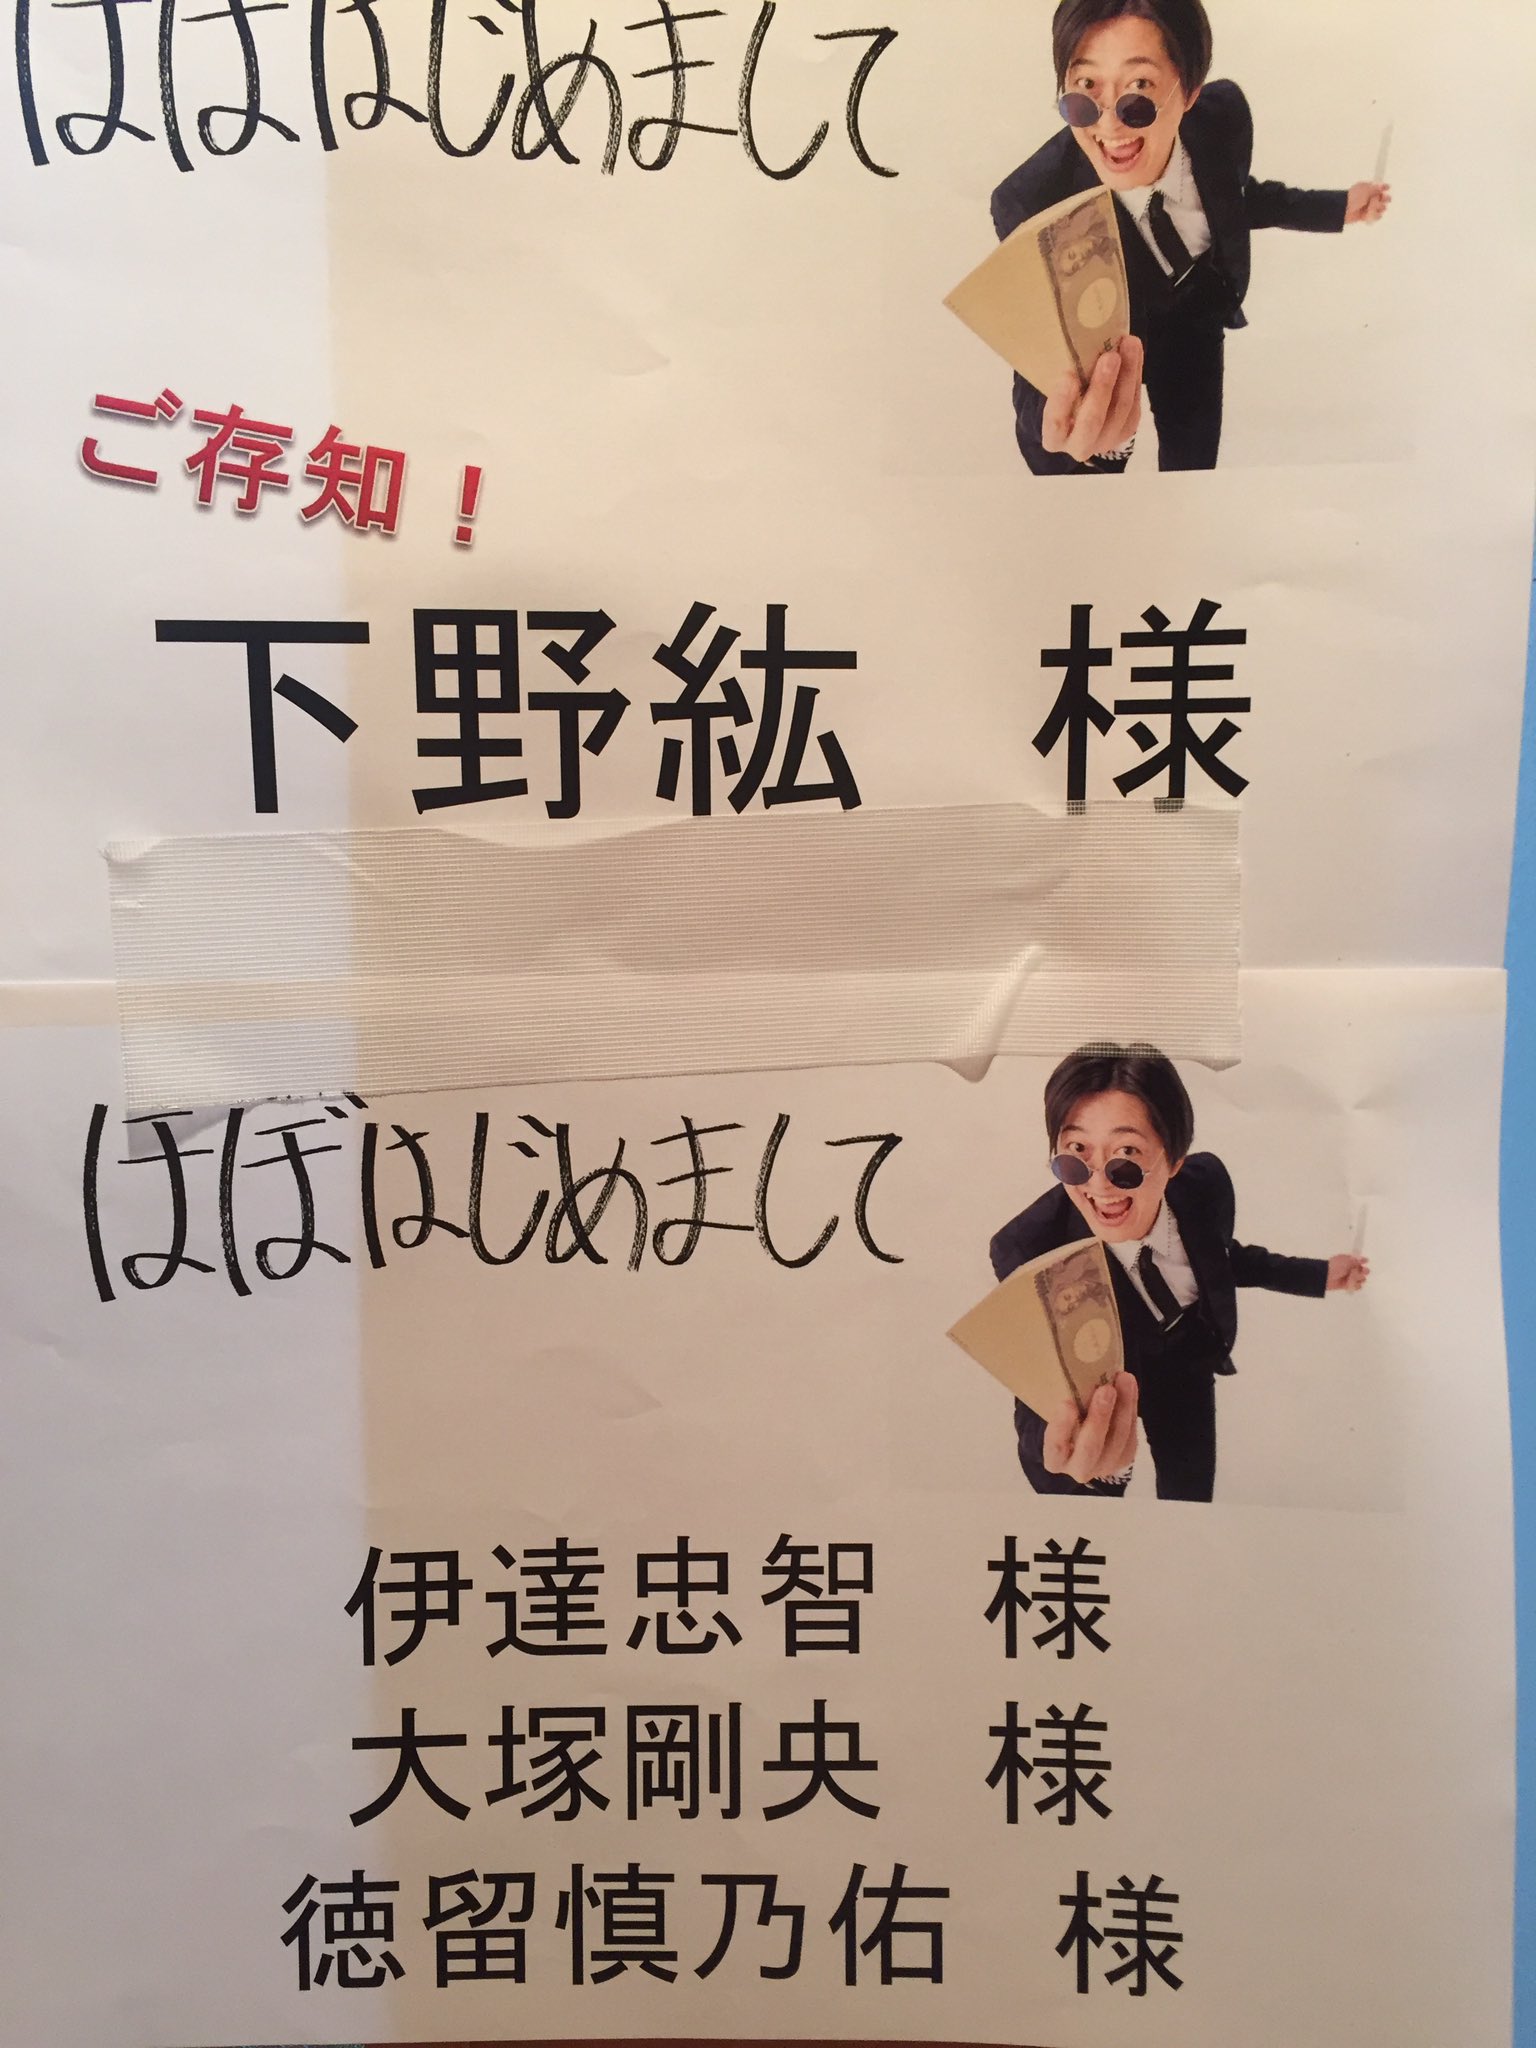 ほぼはじめまして
ご存知！
下野紘 様
ほぼはじめまして
伊達忠智 様
大塚剛央 様
徳留慎乃佑 様